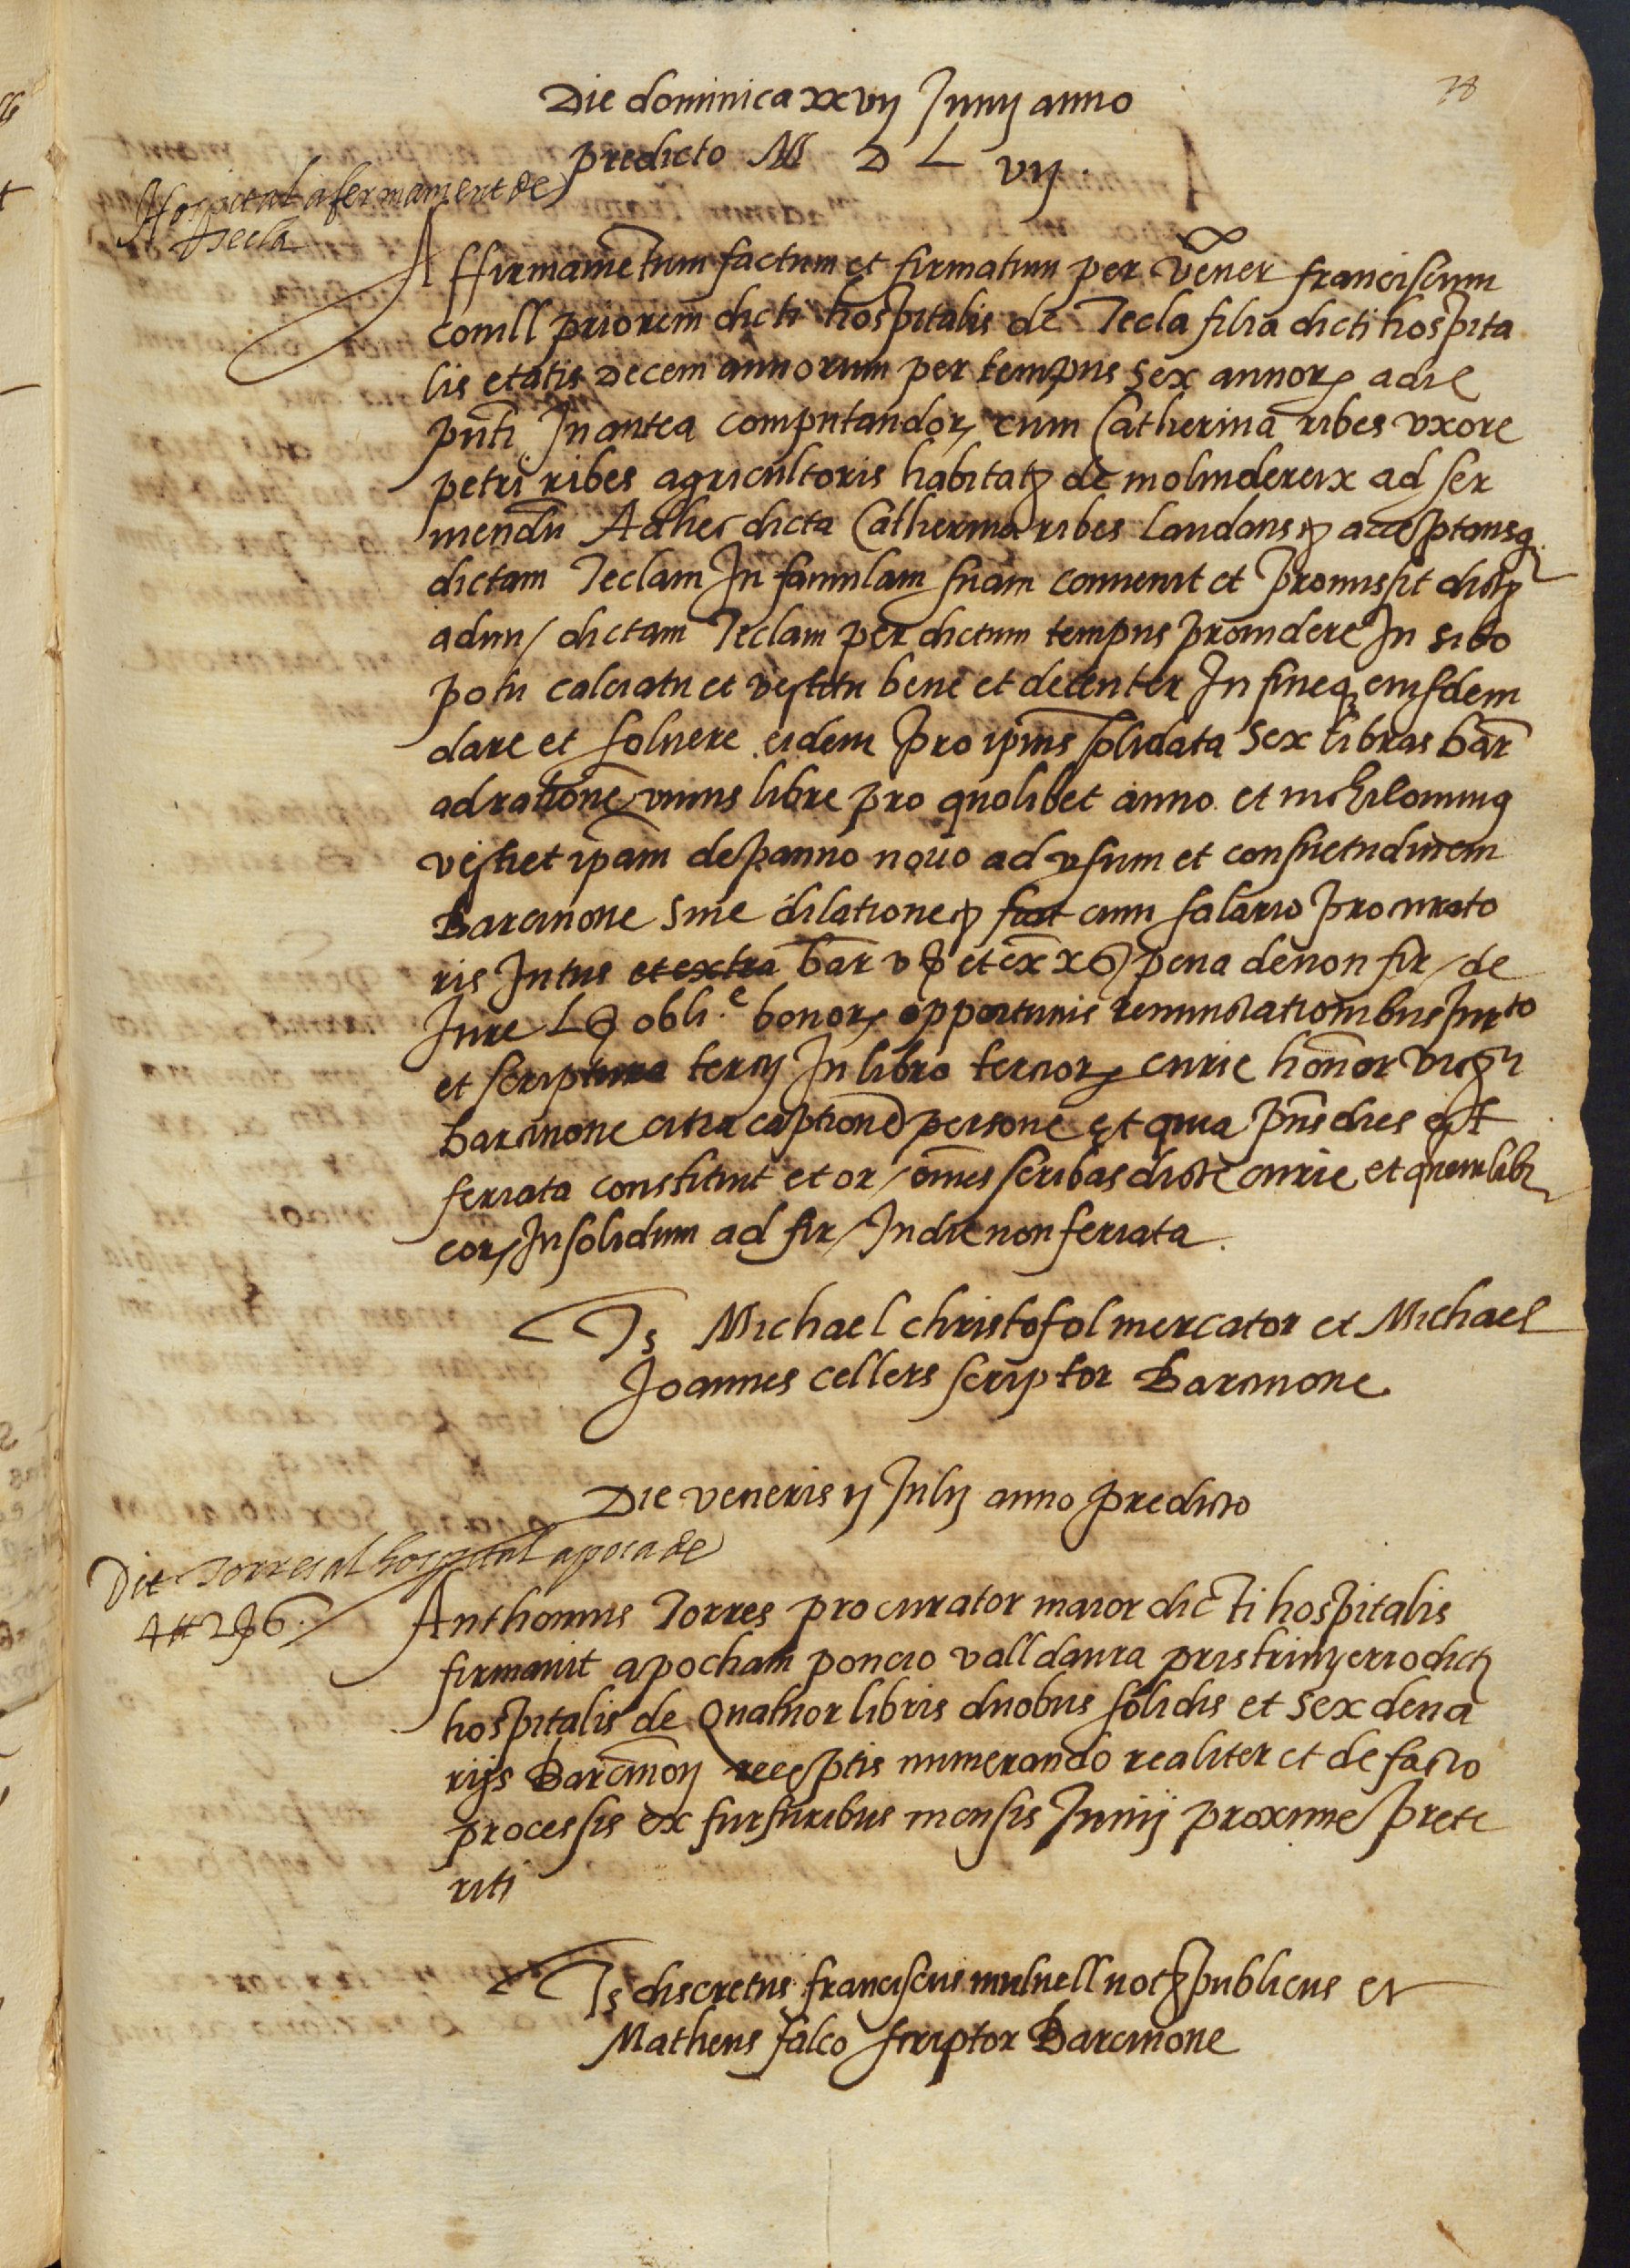 78
Die dominica xxvij Junij anno
predicto M D L vij.
Hospital afermament de
Tecla
Affirmametum factum et firmatum per Vener franciscum
conill priorem dicti hospitalis de Tecla filia dicti hospita
lis etatis decem annorum per tempus sex annor adie
pnti In antea computandor cum Catherina ribes uxore
petri ribes agricultoris habitat de molindereix ad ser
viendu Adhec dicta Catherina ribes laudans acceptansq
dictam Teclam In famulam suam convenit et promissit dict
adm / dictam Teclam per dictum tempus providere In sibo
potu calciatu et vestitu bene et decenter In fineq eiusdem
dare et solvere eidem pro ipius solidata sex libras bar
ad rationem unius libre pro quolibet anno et nichilominus
vestiet ipam de panno novo ad usum et consuetudinem
Barcinone sine dilatione fiat cum salario procurato
ris Intus et extra bar v et ex x pena de non fir / de
Jure obli.e bonor opportunis renunciationibus Jur to
et scriptura tercij In libro tercior curie honor vicarij
barcinone citra captione persone et quia pns dies est
feriata constituit et or / omes scribas dicte curie et quemlibz
eor Insolidum ad fir / In die non feriata.
Ts Michael christofol mercator et Michael
Joannes cellers scriptor Barcinone.
Die veneris ij Julij anno predicto
Dit Torres al hospital apoca de
4 tt 2 s 6.
Anthonius Torres procurator maior dicti hospitalis
firmavit apocham poncio valldaura pristrinyerio dict
hospitalis de Quatuor libris duobus solidis et sex dena
rijs Barcinon receptis numerando realiter et de facto
processis ex furfuribus mensis Junij proxime prete
riti
Ts discretus franciscus mulnell not publicus et
Matheus falco scriptor Barcinone